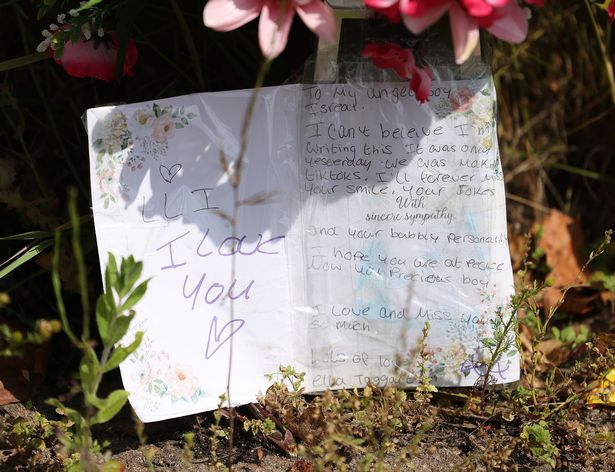 LL I
I love
You
To My angel boy
Isreal.
I can't beleive I'm
writing this It was only
yesterday we was makin
tiktoks. I'll forever miss
your smile, your Jokes
With
sincere sympathy
and your bubbly personality
I hope you are at peace
now you precious boy.
I love and Miss you
so much
Lots of love
Ella